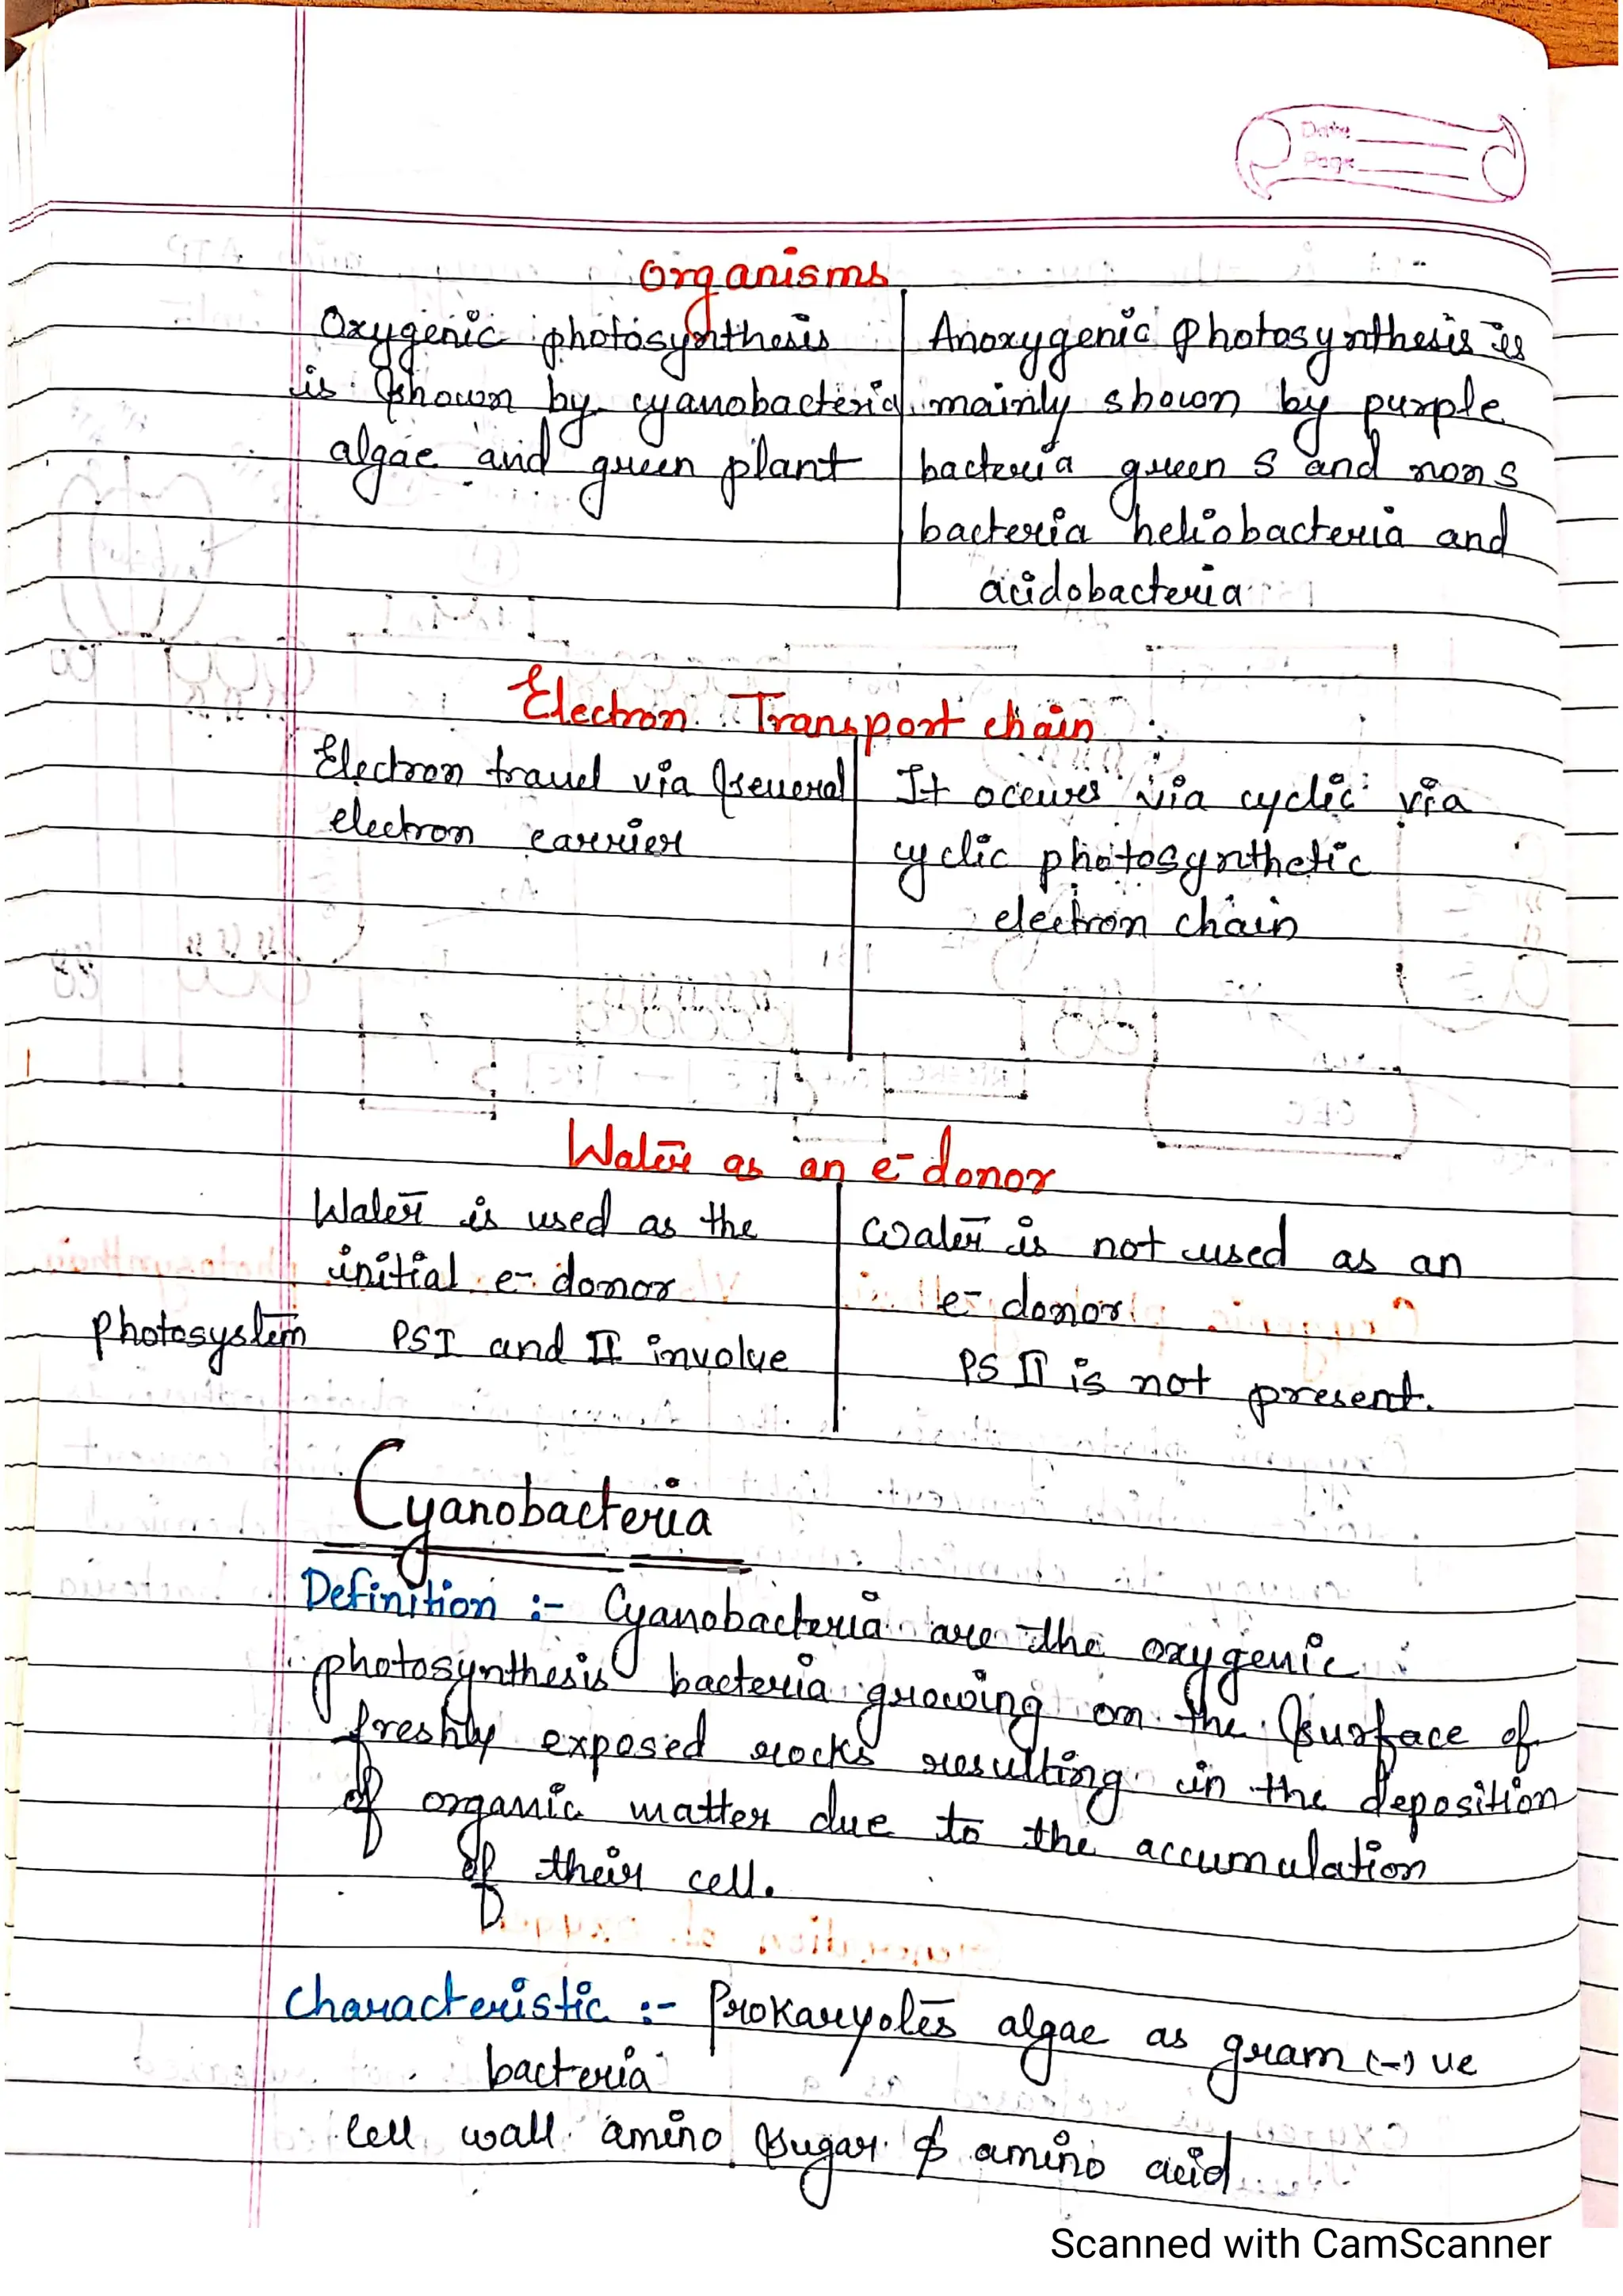 Date
Page
Organisms
Oxygenic photosynthesis
is shown by cyanobacteria
algae and green plant
Anoxygenic Photosynthesis is
mainly shown by purple
bacteria green S and non S
bacteria heliobacteria and
acidobacteria
Electron Transport chain
Electron travel via several
electron carrier
It occurs via cyclic via
cyclic photosynthetic
electron chain
Water as an e- donor
Water is used as the
initial e- donor
photosystem PSI and II involve
Water is not used as an
e- donor
PS II is not present.
Cyanobacteria
Definition :- Cyanobacteria are the oxygenic
photosynthesis bacteria growing on the surface of
freshly exposed rocks resulting in the deposition
of organic matter due to the accumulation
of their cell.
Characteristic :- Prokaryotes algae as gram (-) ve
bacteria
Cell wall amino sugar & amino acid
Scanned with CamScanner